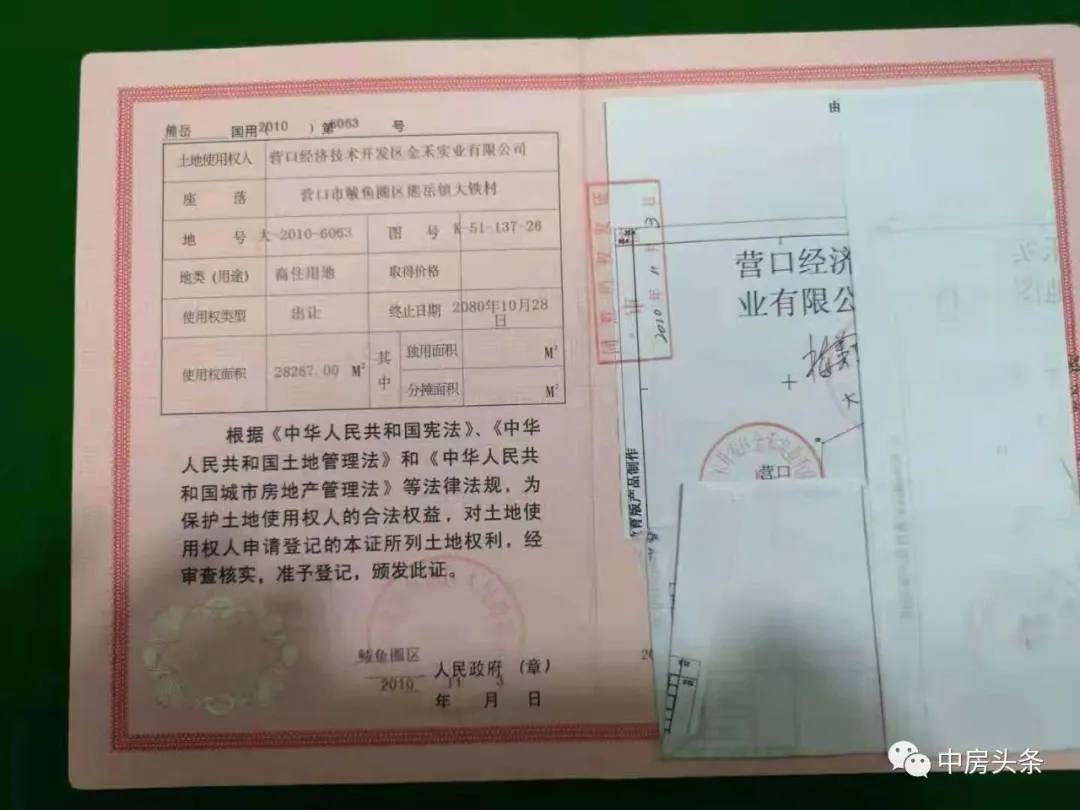 熊岳 国用(2010)第6063 号
土地使用权人 营口经济技术开发区金禾实业有限公司
座 落 营口市鲅鱼圈区熊岳镇大铁村
地 号 大-2010-6063 图 号 K-51-137-26
地类(用途) 商住用地 取得价格
使用权类型 出让 终止日期 2080年10月28日
使用权面积 28267.00 M² 其中 独用面积 M²
分摊面积 M²
根据《中华人民共和国宪法》、《中华
人民共和国土地管理法》和《中华人民共
和国城市房地产管理法》等法律法规，为
保护土地使用权人的合法权益，对土地使
用权人申请登记的本证所列土地权利，经
审查核实，准予登记，颁发此证。
鲅鱼圈区 人民政府（章）
2010 年 11 月 3 日
由
2010年11月3日
营口经济
业有限公
大
营口
育版产品制作
中房头条